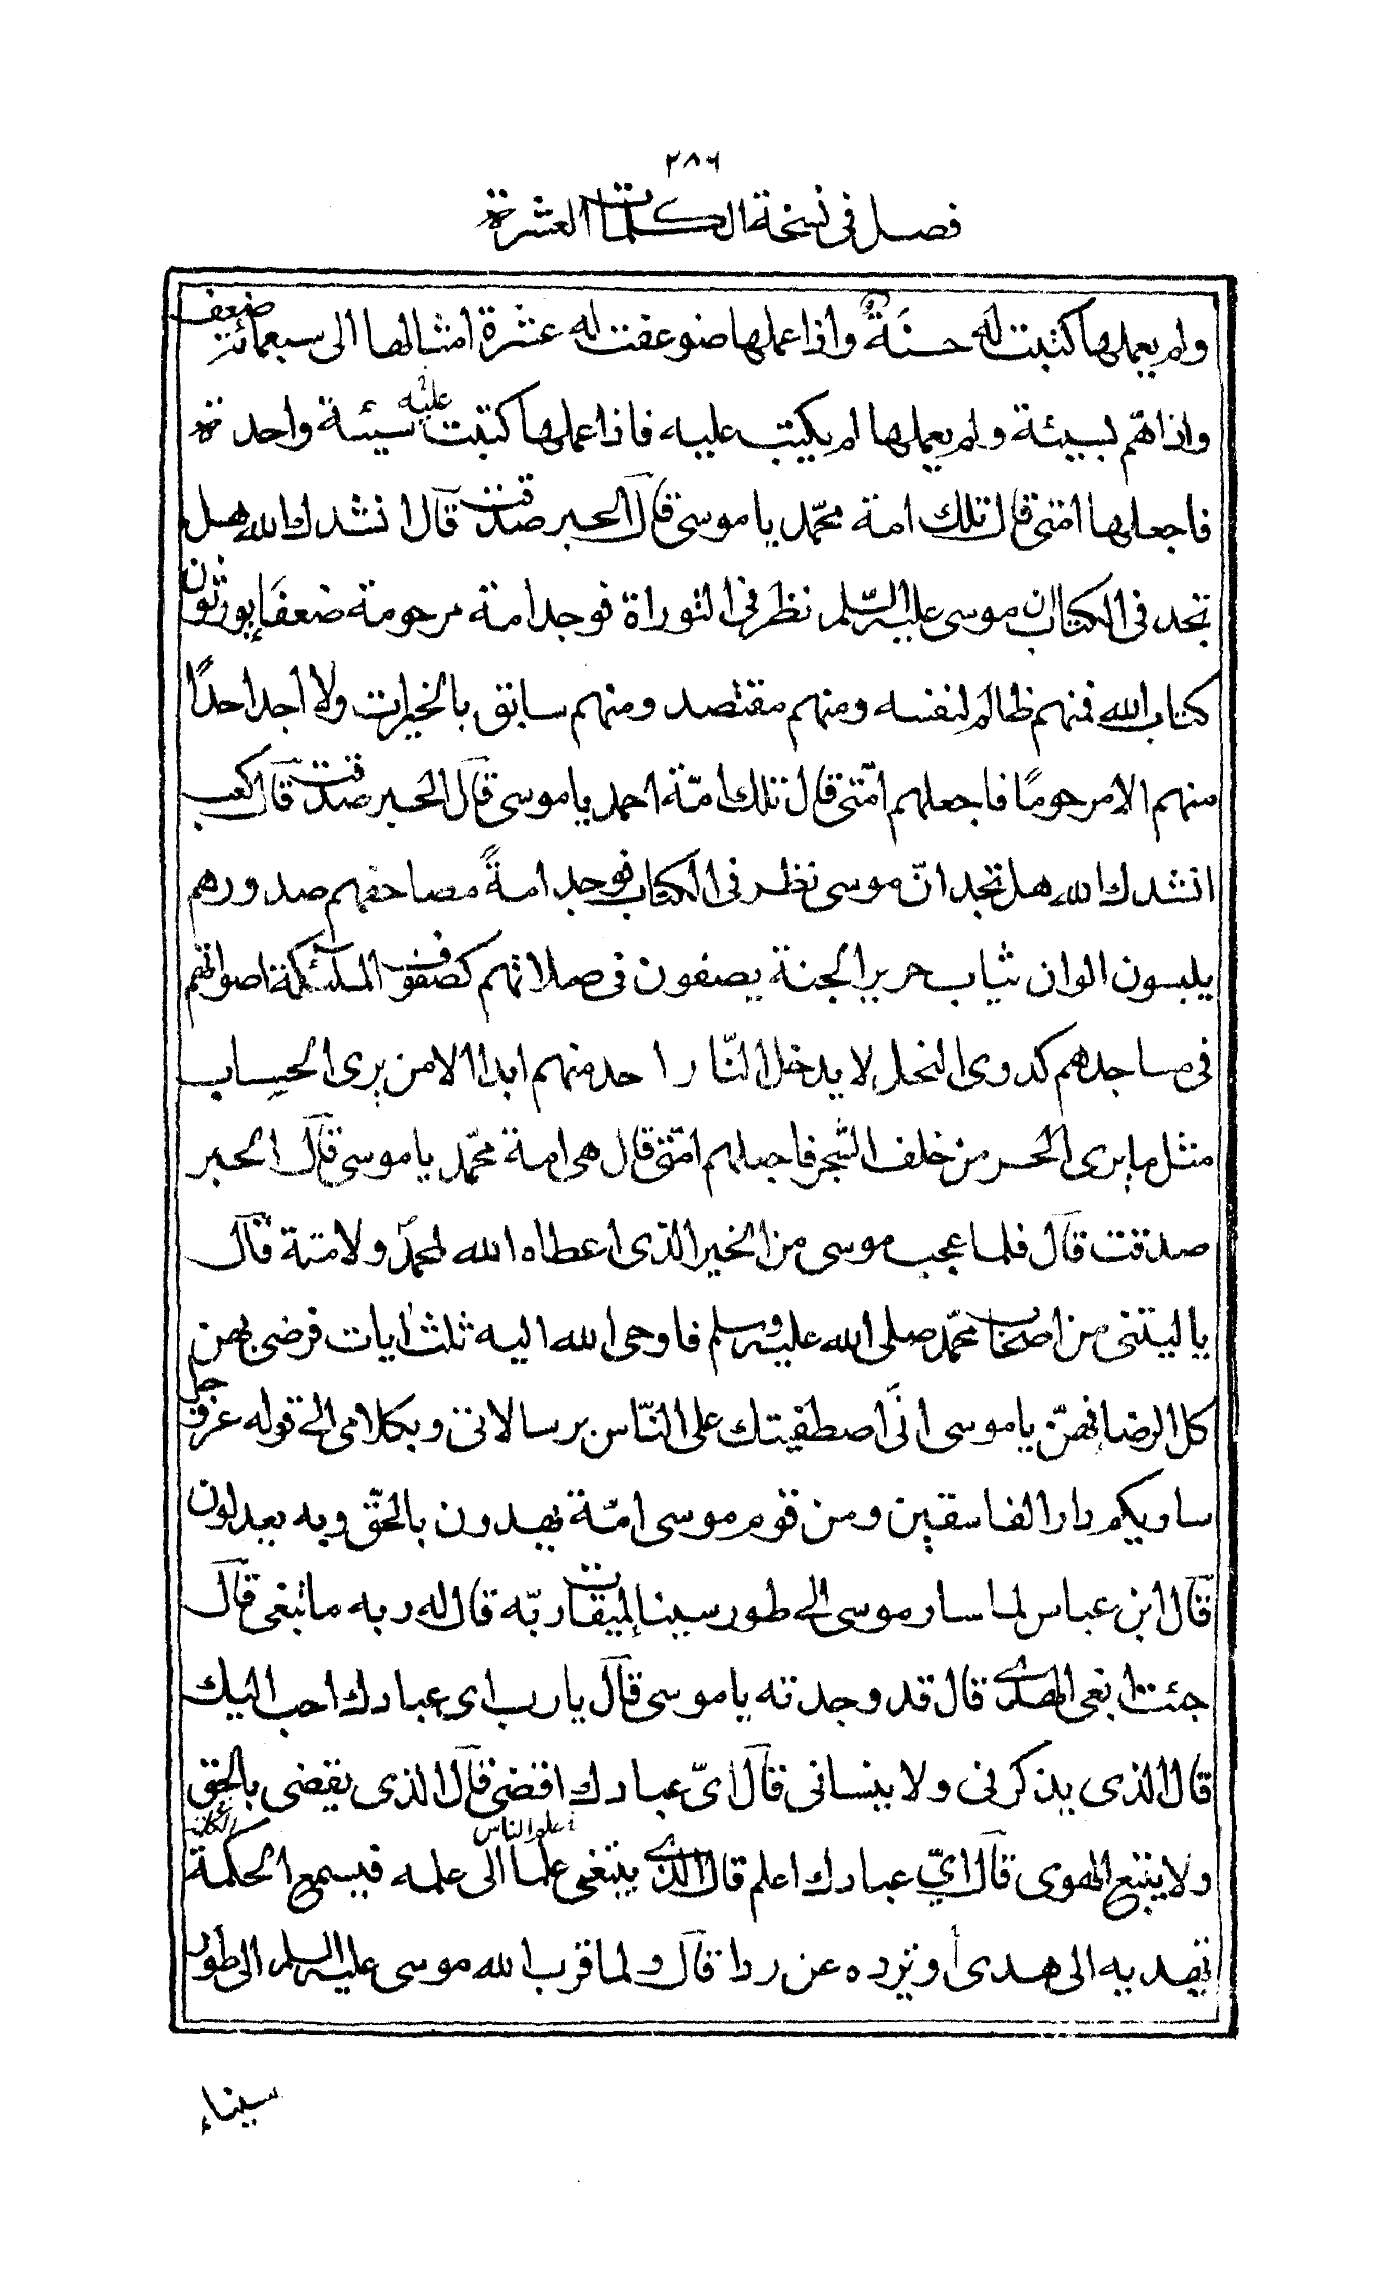 ٢٨٦
فصل في نسخة الكلمات العشرة
ولم يعملها كتبت له حسنةً واذا عملها ضوعفت له عشرة امثالها الى سبعمائة ضعف
واذا همّ بسيئة ولم يعملها لم يكتب عليه فاذا عملها كتبت عليه سيئة واحدة
فاجعلها امتى قال تلك امة محمّد يا موسى قال الحبر صدقت قال انشدك الله هل
تجد فى الكتاب ان موسى عليه السّلم نظر فى التوراة فوجد امة مرحومة ضعفاء يورثون
كتاب الله فمنهم ظالم لنفسه ومنهم مقتصد ومنهم سابق بالخيرات ولا اجد احدًا
منهم الا مرحومًا فاجعلهم امّتى قال تلك امّة احمد يا موسى قال الحبر صدقت قال كعب
انشدك الله هل تجد انّ موسى نظر فى الكتاب فوجد امةً مصاحفهم صدورهم
يلبسون الوان ثياب حرير الجنة يصفون فى صلاتهم كصفوف الملئكة اصواتهم
فى مساجدهم كدوى النحل لا يدخل النّار احد منهم ابدا الا من يرى الحساب
مثل ما يرى الحر من خلف الشّجر فاجعلهم امّتى قال هى امة محمّد يا موسى قال الحبر
صدقت قال فلما عجب موسى من الخير الذى اعطاه الله لمحمّد ولامته قال
يا ليتنى من اصحاب محمّد صلى الله عليه وسلم فاوحى الله اليه ثلث ايات فرضى بهن
كل الرضا فهنّ يا موسى انّى اصطفيتك على النّاس برسالاتى وبكلامى الى قوله عز وجل
ساوريكم دار الفاسقين ومن قوم موسى امّة يهدون بالحّق وبه يعدلون
قال ابن عباس لما سار موسى الى طور سيناء لميقات ربّه قال له ربه ما تبغى قال
جئت ابغى الهدى قال قد وجدته يا موسى قال يا رب اى عبادك احب اليك
قال الذى يذكرنى ولا ينسانى قال اىّ عبادك اقضى قال الذى يقضى بالحق
ولا يتبع الهوى قال ايّ عبادك اعلم قال الذى يبتغى علم الناس علما الى علمه فيسمع الحكمة
تهديه الى هدى أو تزده عن ردا قال ولما قرب الله موسى عليه السلم الى طور
سيناء